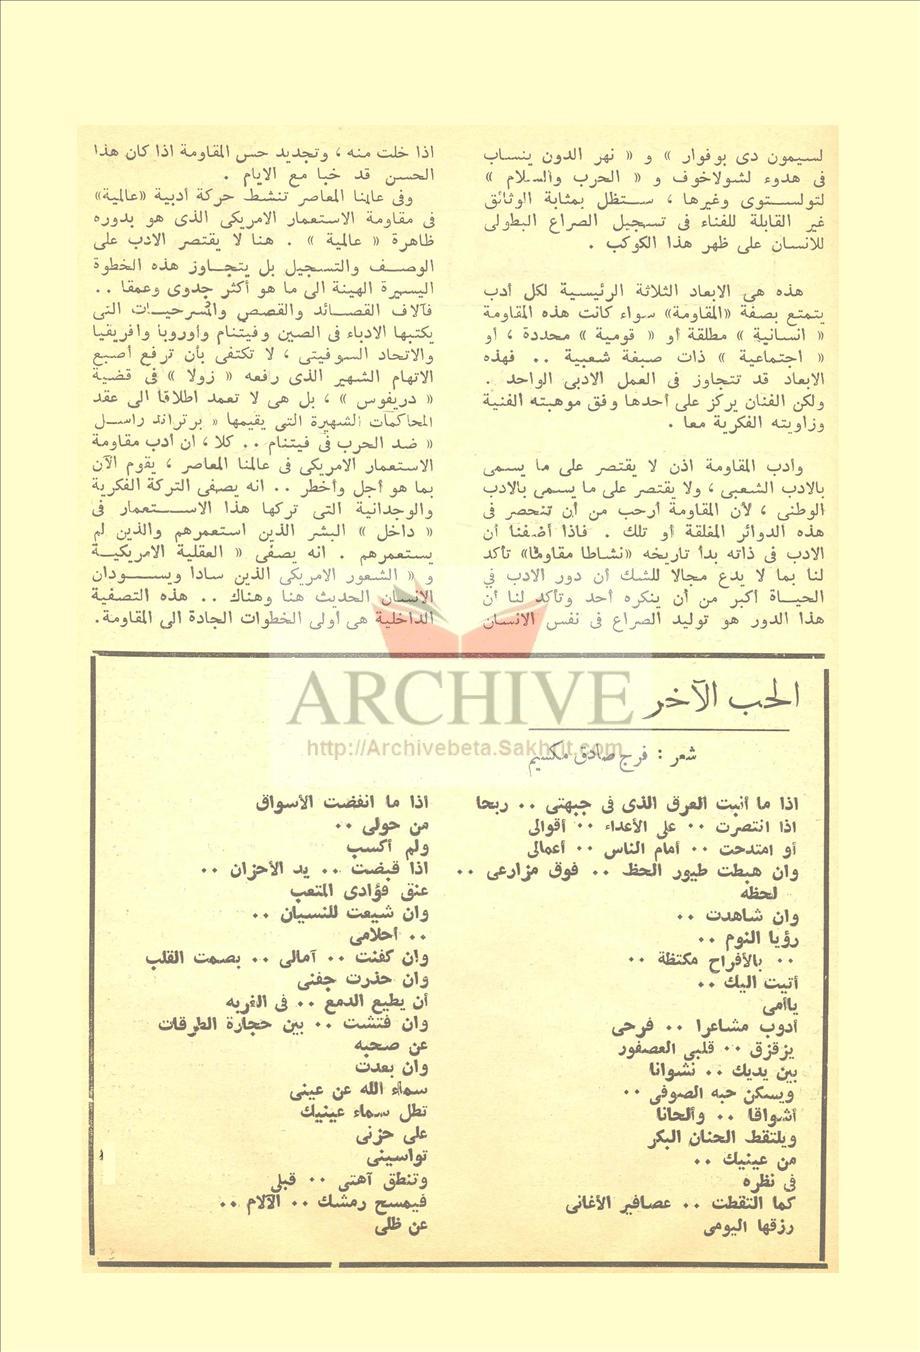 لسيمون دى بوفوار » و « نهر الدون ينساب
فى هدوء لشولاخوف و « الحرب والسلام »
لتولستوى وغيرها ، ستظل بمثابة الوثائق
غير القابلة للفناء فى تسجيل الصراع البطولى
للانسان على ظهر هذا الكوكب .
هذه هى الابعاد الثلاثة الرئيسية لكل أدب
يتمتع بصفة «المقاومة» سواء كانت هذه المقاومة
« انسانية » مطلقة أو « قومية » محددة ، أو
« اجتماعية » ذات صبغة شعبية .. فهذه
الابعاد قد تتجاوز فى العمل الادبى الواحد .
ولكن الفنان يركز على أحدها وفق موهبته الفنية
وزاويته الفكرية معا .
وأدب المقاومة اذن لا يقتصر على ما يسمى
بالادب الشعبى ، ولا يقتصر على ما يسمى بالادب
الوطنى ، لأن المقاومة أرحب من أن تنحصر فى
هذه الدوائر المغلقة أو تلك . فاذا أضفنا أن
الادب فى ذاته بدأ تاريخه «نشاطا مقاوما» تأكد
لنا بما لا يدع مجالا للشك أن دور الادب في
الحياة اكبر من أن ينكره أحد وتأكد لنا أن
هذا الدور هو توليد الصراع فى نفس الانسان
اذا خلت منه ، وتجديد حس المقاومة اذا كان هذا
الحسن قد خبا مع الايام .
وفى عالمنا المعاصر تنشط حركة أدبية «عالمية»
فى مقاومة الاستعمار الامريكى الذى هو بدوره
ظاهرة « عالمية » . هنا لا يقتصر الادب على
الوصف والتسجيل بل يتجاوز هذه الخطوة
اليسيرة الهينة الى ما هو أكثر جدوى وعمقا ..
فآلاف القصائد والقصص والمسرحيات التى
يكتبها الادباء فى الصين وفيتنام وأوروبا وافريقيا
والاتحاد السوفيتى ، لا تكتفى بأن ترفع أصبع
الاتهام الشهير الذى رفعه « زولا » فى قضية
« دريفوس » ، بل هى لا تعمد اطلاقا الى عقد
المحاكمات الشهيرة التى يقيمها « برتراند راسل
« ضد الحرب فى فيتنام .. كلا ، ان أدب مقاومة
الاستعمار الامريكى فى عالمنا المعاصر ، يقوم الآن
بما هو أجل وأخطر .. انه يصفى التركة الفكرية
والوجدانية التى تركها هذا الاستعمار فى
« داخل » البشر الذين استعمرهم والذين لم
يستعمرهم . انه يصفى « العقلية الامريكية
و « الشعور الامريكى الذين سادا ويسودان
الانسان الحديث هنا وهناك .. هذه التصفية
الداخلية هى أولى الخطوات الجادة الى المقاومة.
ARCHIVE
http://Archivebeta.Sakhrit.com
الحب الآخر
شعر : فرج صادق مكسيم
اذا ما أنبت العرق الذى فى جبهتى .. ربحا
اذا انتصرت .. على الأعداء .. أقوالى
أو امتدحت .. أمام الناس .. أعمالى
وان هبطت طيور الحظ .. فوق مزارعى ..
لحظه
وان شاهدت ..
رؤيا النوم ..
.. بالأفراح مكتظة ..
أتيت اليك ..
ياأمى
أذوب مشاعرا .. فرحى
يزقزق .. قلبى العصفور
بين يديك .. نشوانا
ويسكن حبه الصوفى ..
أشواقا .. وألحانا
ويلتقط الحنان البكر
من عينيك ..
فى نظره
كما التقطت .. عصافير الأغانى
رزقها اليومى
اذا ما انفضت الأسواق
من حولى ..
ولم أكسب
اذا قبضت .. يد الأحزان ..
عنق فؤادى المتعب
وان شيعت للنسيان ..
.. أحلامى
وان كفنت .. آمالى .. بصمت القلب
وان حذرت جفنى
أن يطيع الدمع .. فى الغربه
وان فتشت .. بين حجارة الطرقات
عن صحبه
وان بعدت
سماء الله عن عينى
تظل سماء عينيك
على حزنى
تواسينى
وتنطق آهتى .. قبلى
فيمسح رمشك .. الآلام ..
عن ظلى